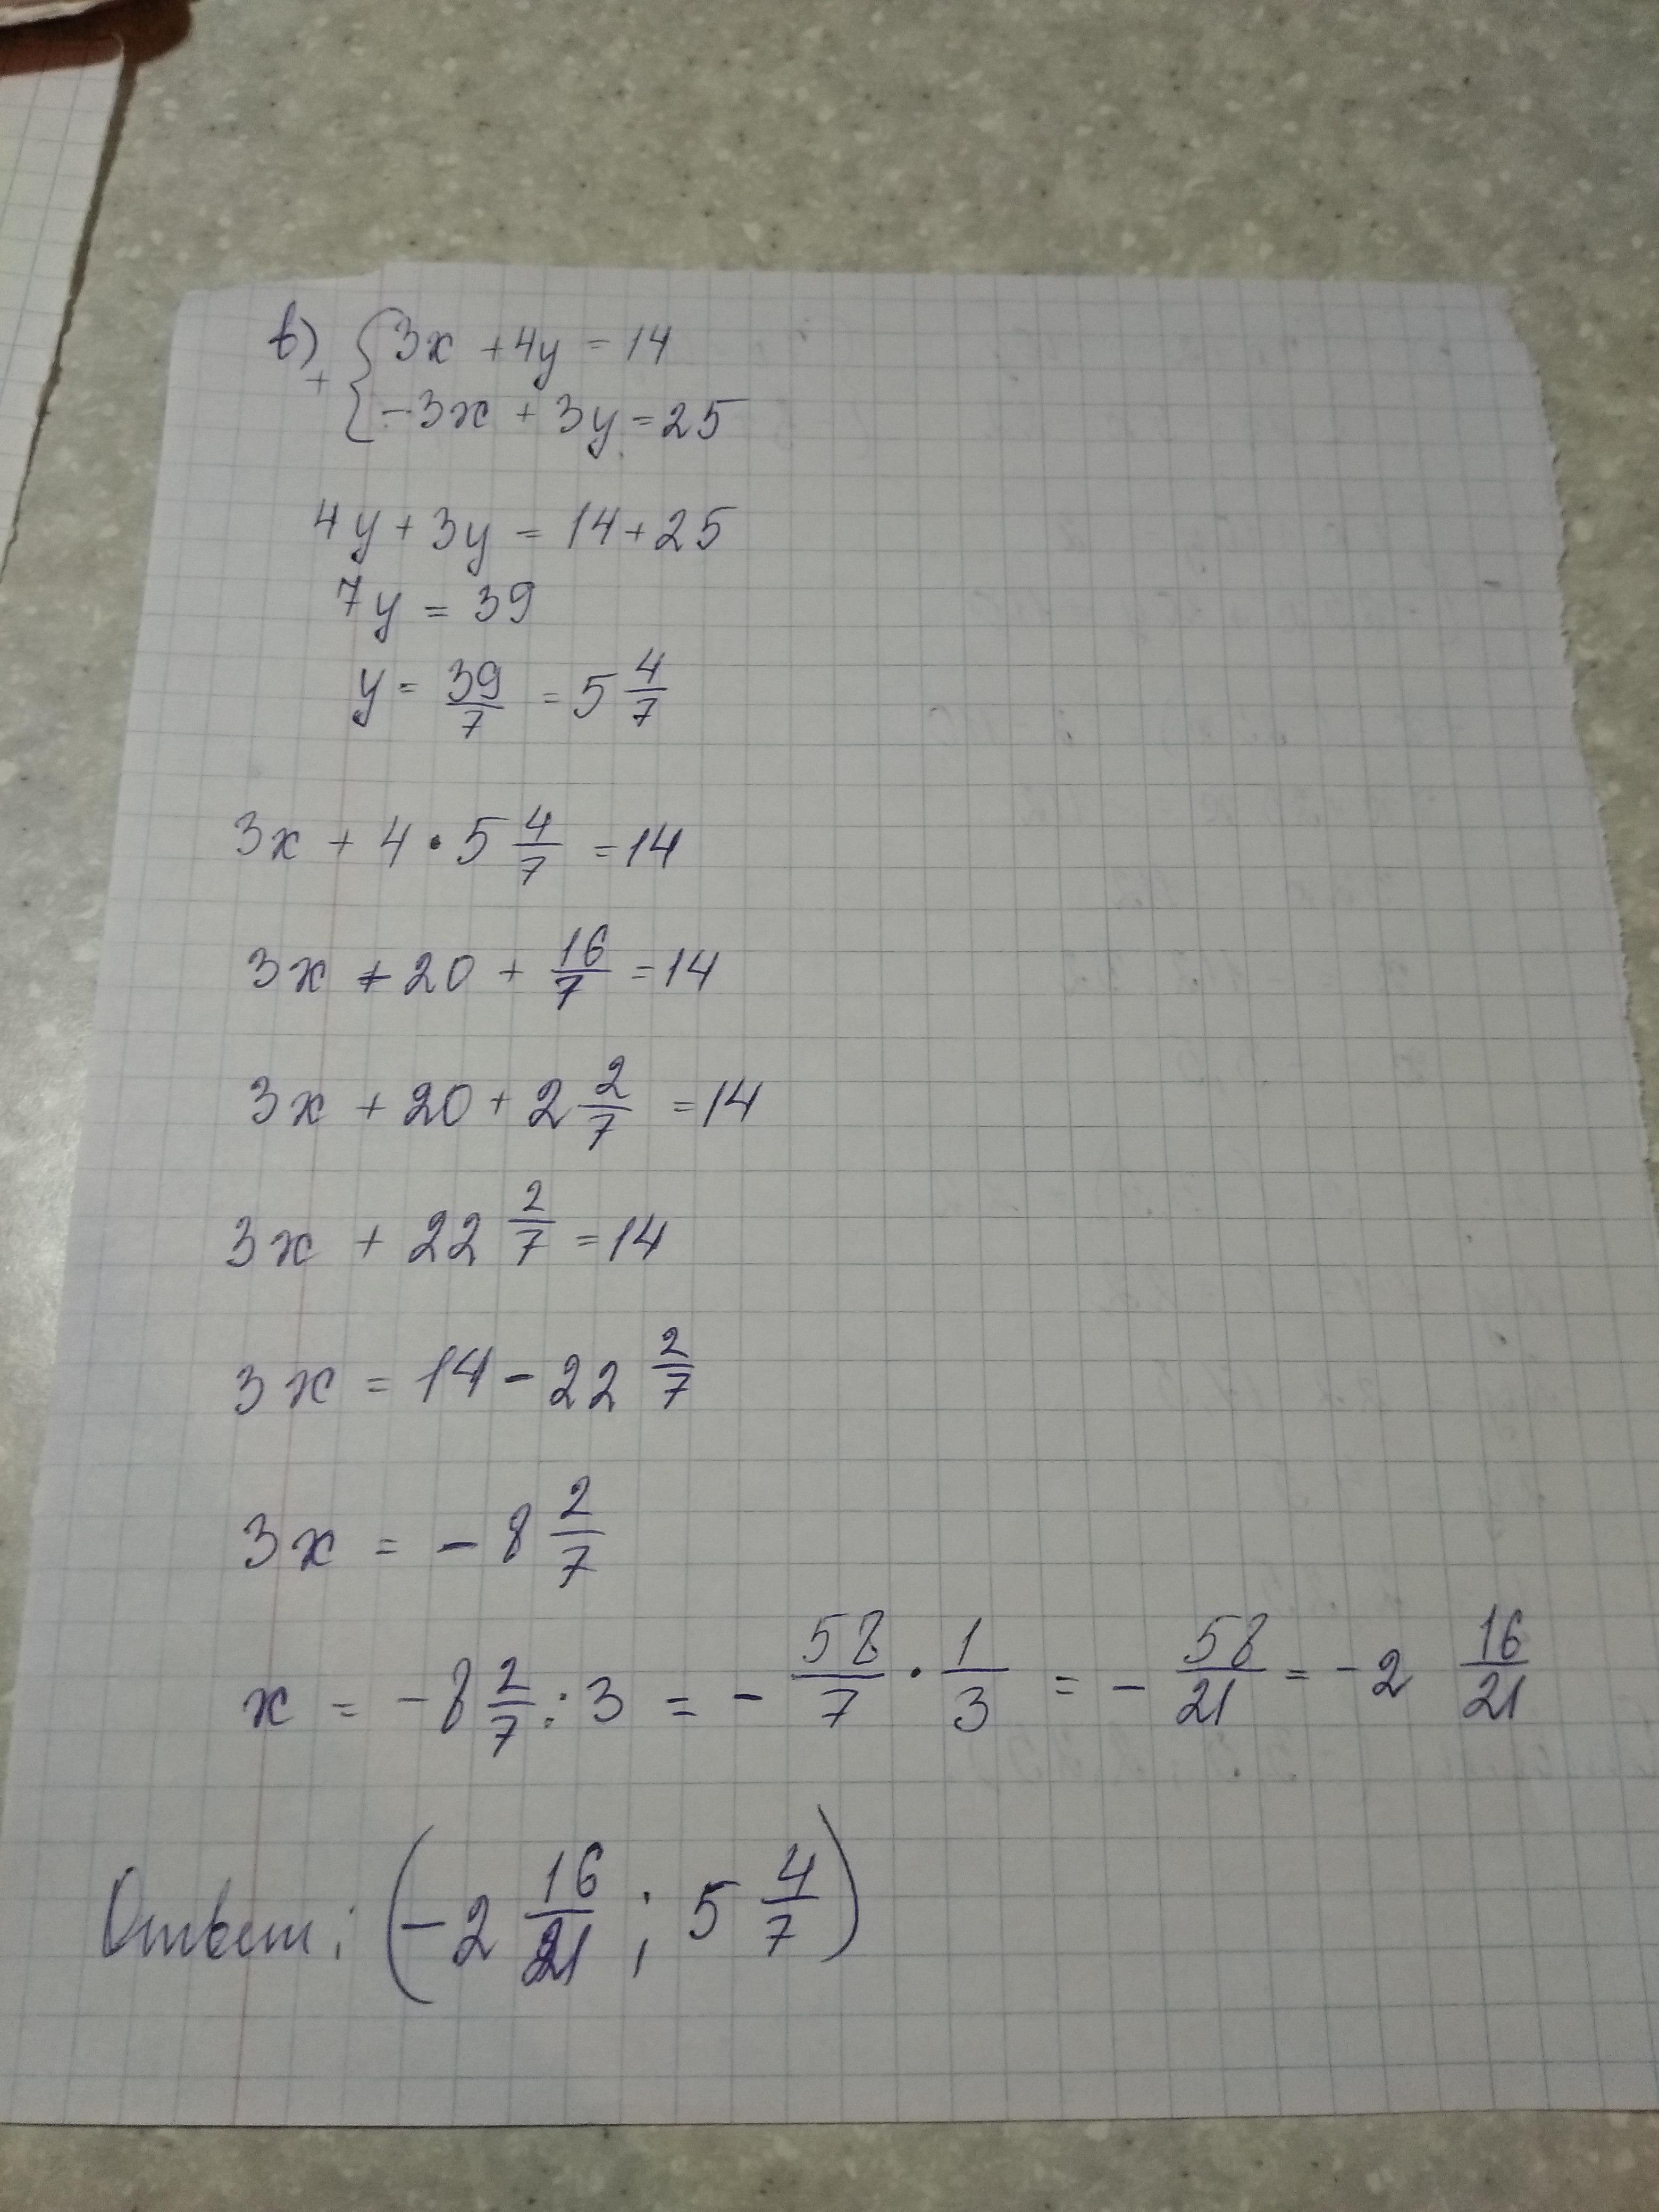 в) + { 3x + 4y = 14
-3x + 3y = 25
4y + 3y = 14 + 25
7y = 39
y = 39/7 = 5 4/7
3x + 4 · 5 4/7 = 14
3x + 20 + 16/7 = 14
3x + 20 + 2 2/7 = 14
3x + 22 2/7 = 14
3x = 14 - 22 2/7
3x = - 8 2/7
x = - 8 2/7 : 3 = - 58/7 · 1/3 = - 58/21 = - 2 16/21
Ответ: (- 2 16/21 ; 5 4/7)